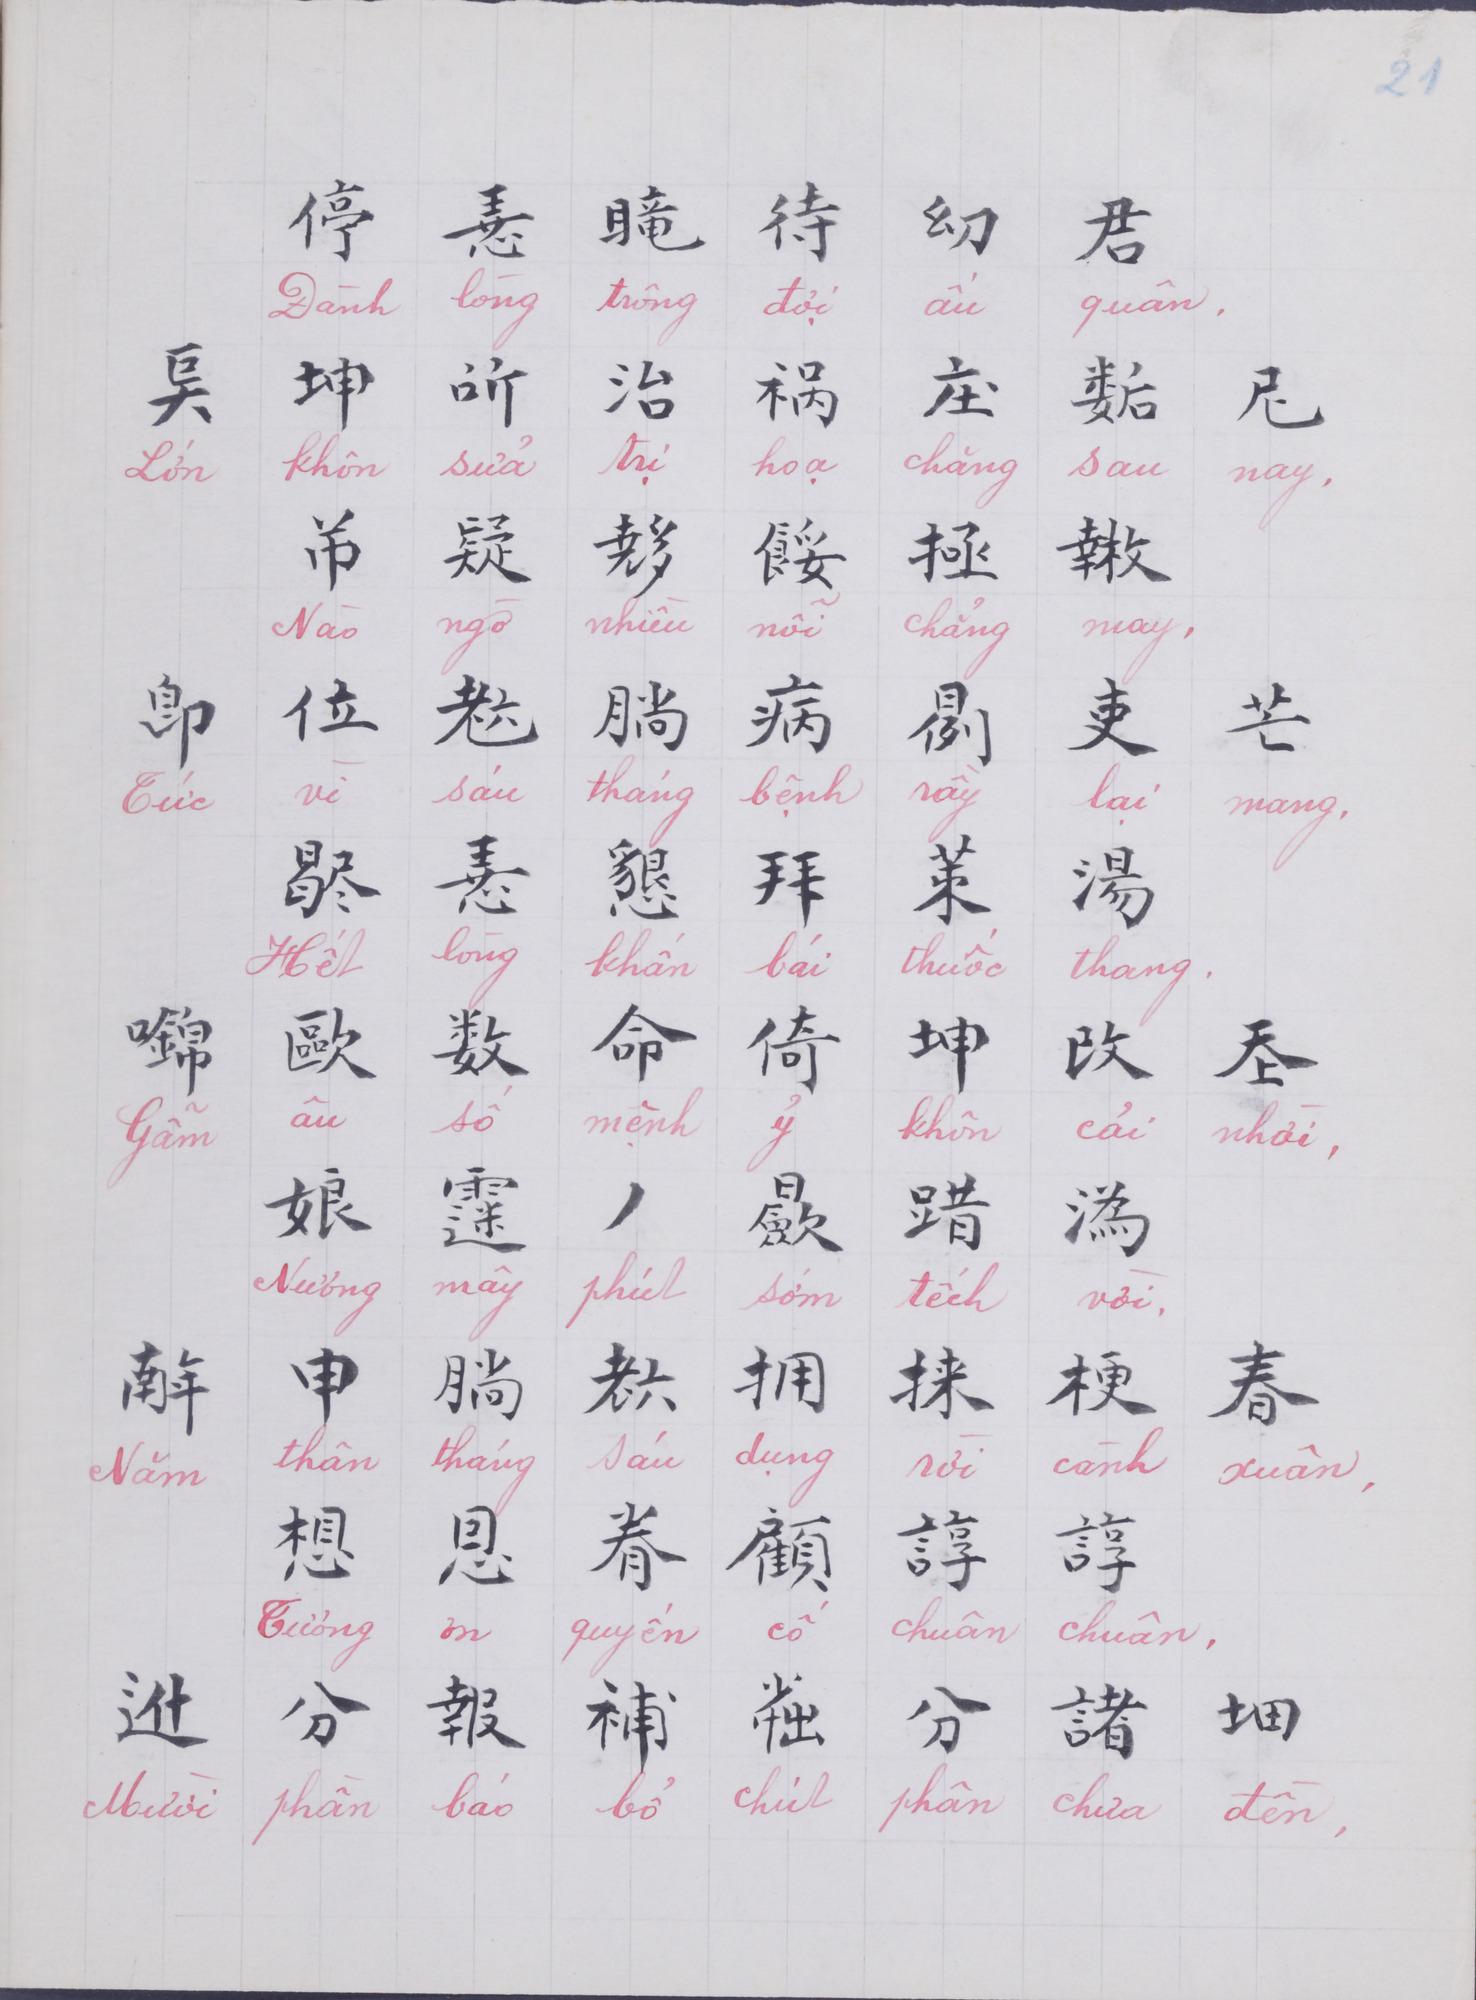 21
停 𢚸 𥊚 待 幼 君
Đành lòng trông đợi ấu quân.
坤 𠯅 治 祸 庄 尼
Lớn khôn sửa trị hoạ chăng sau nay.
疑 餒 極
Nào ngờ nhiều nỗi chẳng may,
位 𦒹 𣎃 病 吏 芒
Tức vì sáu tháng bệnh rầy lại mang.
𢚸 懇 拜 菓 湯
Hết lòng khấn bái thuốc thang.
㗕 歐 数 命 倚 坤 改 𡗶
Gẫm âu số mệnh ỷ khôn cải nhời,
娘 丿 踖 潙
Nương mây phút sớm tếch vời.
申 𣎃 𦒹 拥 捒 梗 春
Năm thân tháng sáu dụng rồi cành xuân,
想 恩 眷 顧 諄 諄
Tưởng ơn quyến cố chuân chuân,
𨑮 分 報 補 分 諸 𡊰
Mười phần báo bổ chút phân chưa đền,